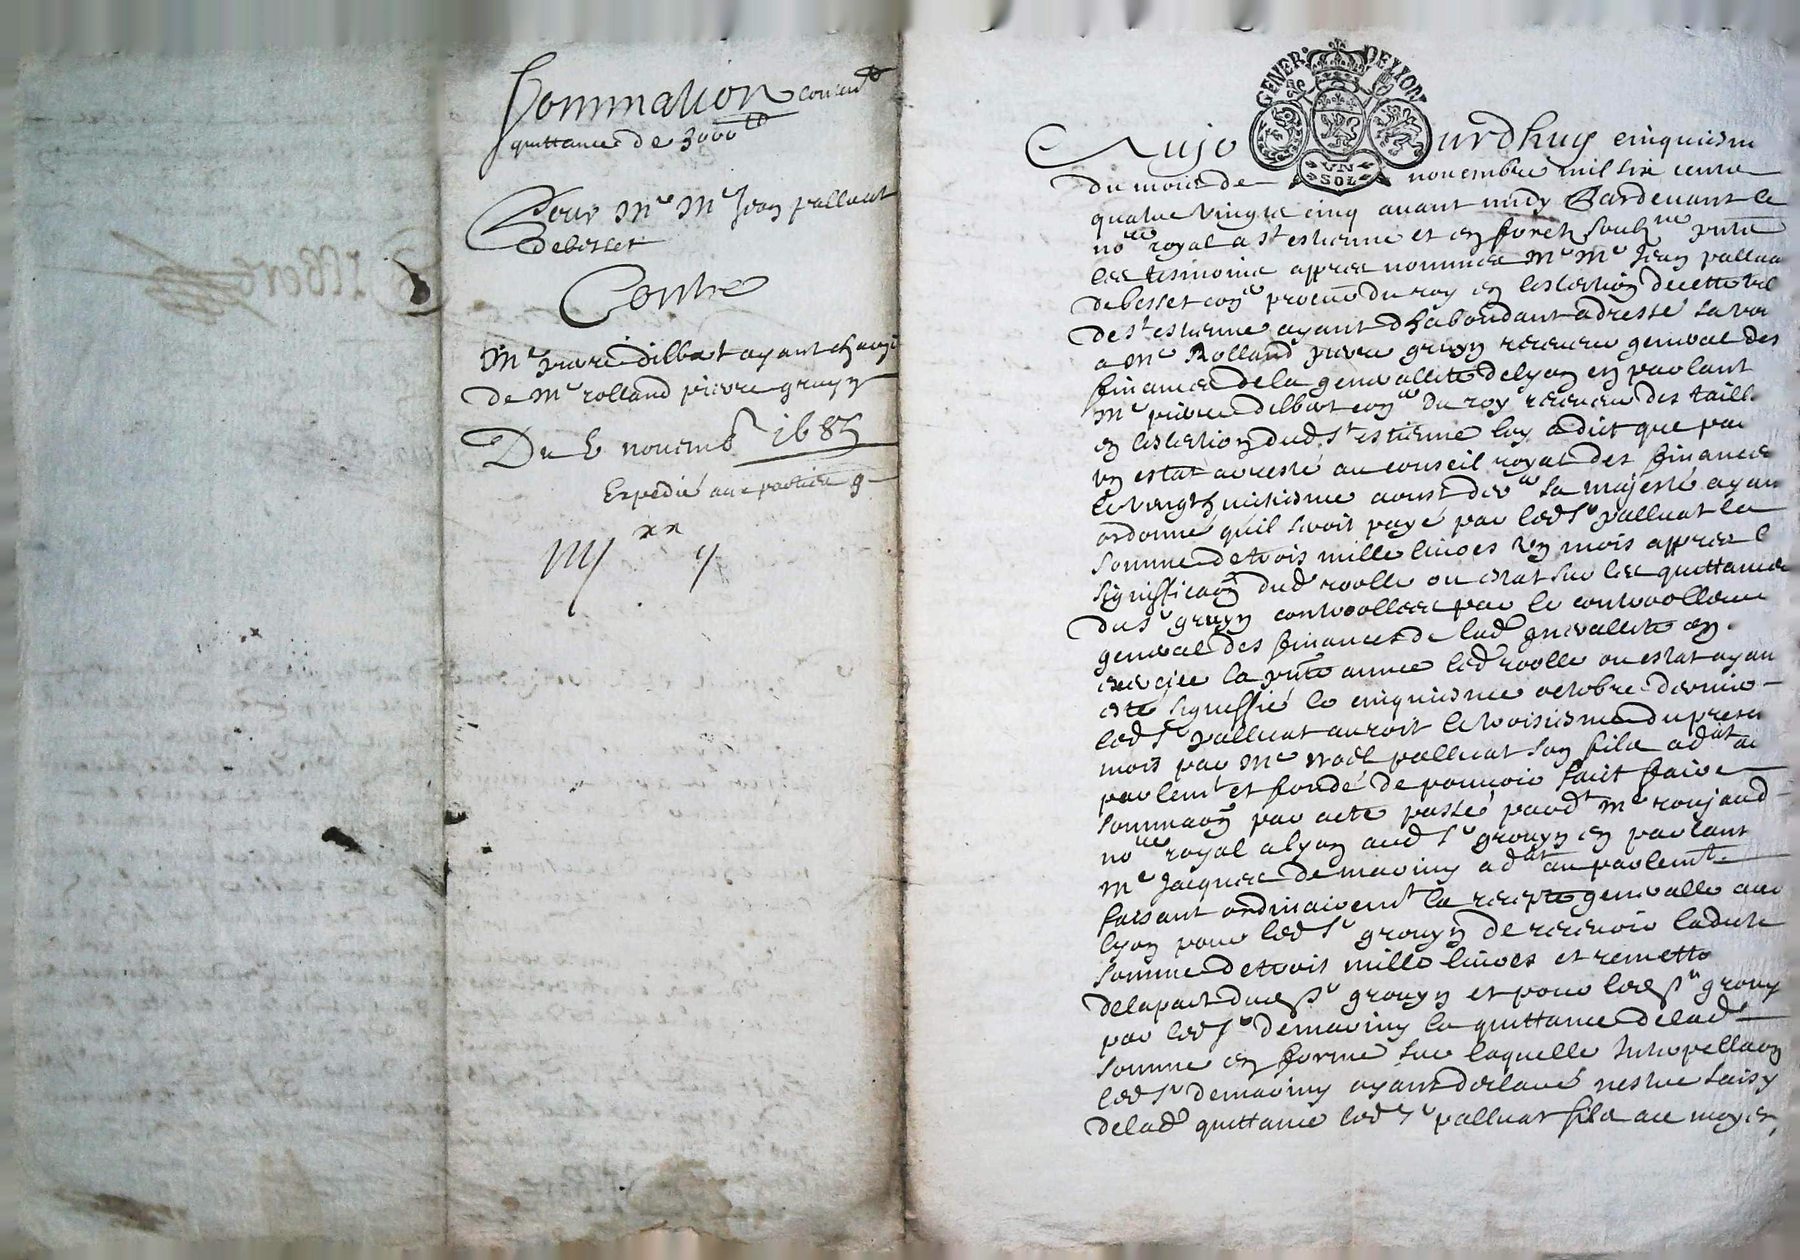 Sommation contend
quittance de 3000 ltt
Pour Mre Me Jean palluat
debesset
Contre
Me pierre dilbert ayant charge
de Me rolland pierre gruyn
Du 5 novemb 1685
Expedié aux parties g
GENER. DE LYON
UN
SOL
Aujourdhuy cinquiesm
du mois de novembre mil six cents
quatre vingts cinq avant midy Pardevant le
nore royal a St estienne et en forest soubne pntz
les tesmoins appres nommes Mre Me Jean palluat
debesset coner procur du roy en leslection de cette vil
de St estienne ayant dhabondant adressé sa voi
a Me Rolland pierre gruyn receveur general des
finances de la generallitte de lyon en parlant
Me pierre dilbert coner du roy receveur des taill
en leslection dud St estienne luy a dict que par
un estat arresté au conseil royal des finances
le vingt huictiesme aoust der sa majesté ayan
ordonné quil seroit payé par led Sr palluat la
somme de trois mille livres un mois appres l
significaon dud roolle ou estat sur les quittances
du Sr gruyn controollees par le controolleur
general des finances de lad generallitte en
exercice la pnte annee led roolle ou estat ayan
esté signiffié le cinquiesme octobre dernier
led Sr palluat auroit le troisiesme du present
mois par Me noël palluat son fils adat au
parlemt et fondé de pouvoir faict faire
sommaon par acte passé pardt Me roujaud
nore royal a lyon aud Sr grouyn en parlant
Me Jacques demaviny adat au parlemt
faisant ordinairemt la recepte generalle aud
lyon pour led Sr grouyn de recevoir ladicte
somme de trois mille livres et remettre
de la part dud Sr grouyn et pour led Sr grouy
par led Sr demaviny la quittance de lad
somme en forme sur laquelle Interpellaon
led Sr demaviny ayant declaré nestre saisy
de lad quittance led Sr palluat fils au moyen